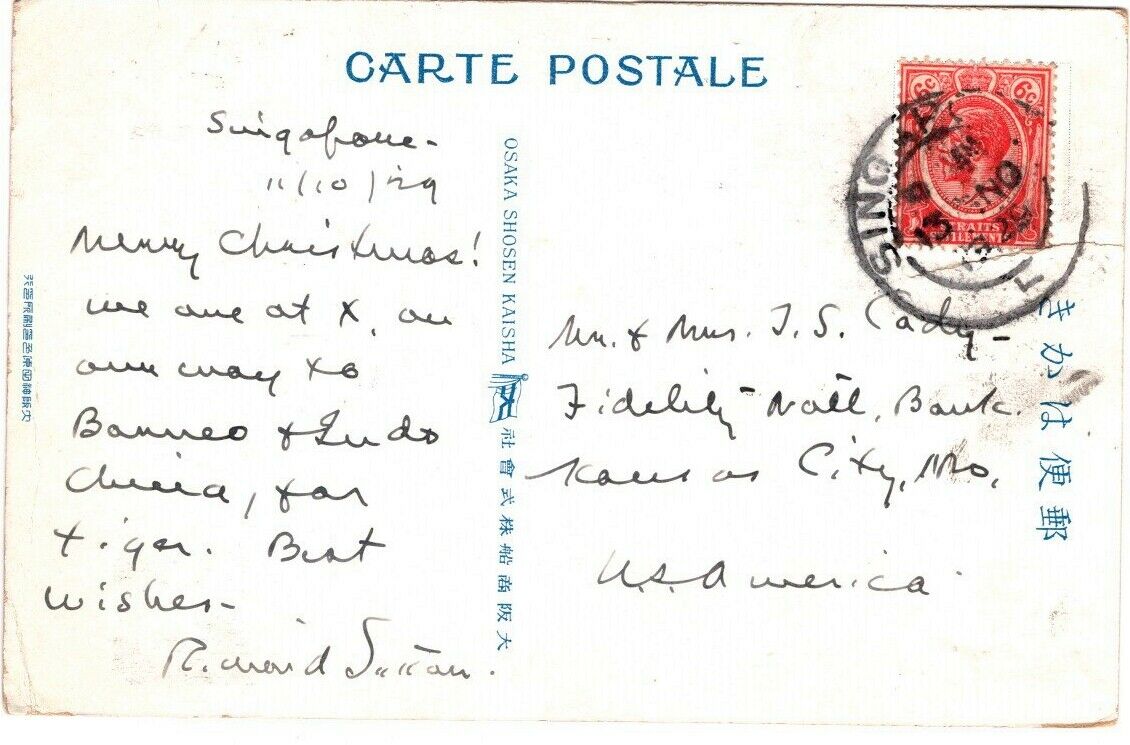 CARTE POSTALE
Singapore -
11/10/29
Merry Christmas!
We are at X, on
our way to
Borneo & Indo
China, for
tiger. Best
wishes -
Richard Sutton.
OSAKA SHOSEN KAISHA
大阪商船株式會社
Mr. & Mrs. J. S. Cady -
Fidelity Natl. Bank.
Kansas City, Mo.
U.S. America
6c 6c
STRAITS
SETTLEMENTS
SINGAPORE
13 NO
1929
郵便はかき